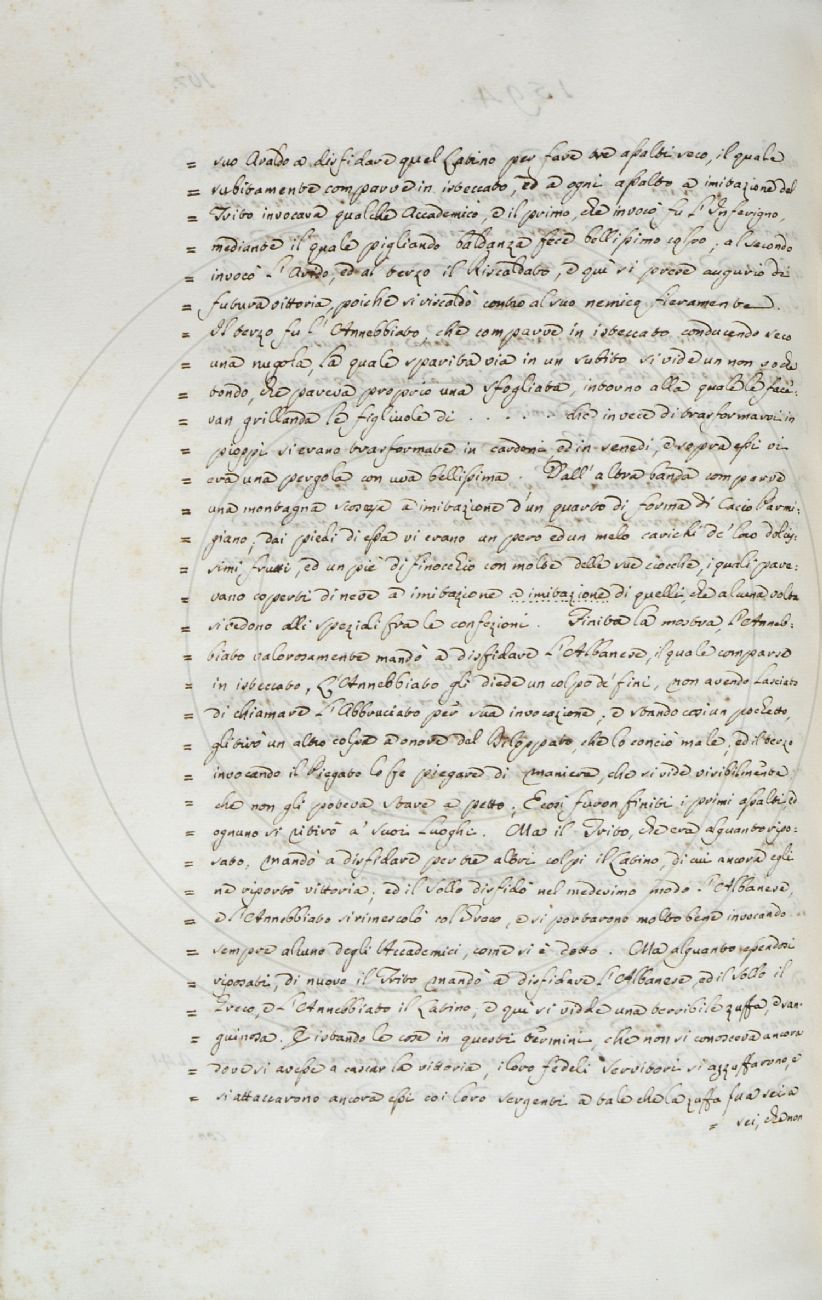 = suo Araldo a disfidare quel Latino per fare tre assalti seco, il quale
= subitamente comparve in isteccato, ed a ogni assalto a imitazione del
= Trito invocava qualche Accademico, e il primo, che invocò fu l'Inferigno,
= mediante il quale pigliando baldanza fece bellissimo colpo; al secondo
= invocò l'Arido, ed al terzo il Riscaldato, e quì si prese augurio di
= futura vittoria, poiche si riscaldò contro al suo nemico fieramente.
= Il terzo fu l'Annebbiato, che comparve in isteccato conducendo seco
= una nugola, la quale sparita via in un subito si vide un non so che
= tondo, che pareva proprio una sfogliata, intorno alla quale le face-
= van grillanda le figliuole di . . . . . che in vece di trasformarsi in
= pioppi si erano trasformate in cardoni, ed in senedi, e sopra essi vi
= era una pergola con uva bellissima. Dall'altra banda comparve
= una montagna scoscesa a imitazione d'un quarto di forma di Cacio Parmi-
= giano, dai piedi di essa vi erano un pero ed un melo carichi de' loro dolcis-
= simi frutti, ed un piè di finocchio con molte delle sue ciocche, i quali pare-
= vano coperti di neve a imitazione a imitazione di quelli, che alcuna volta
= si vedono alli speziali fra le confezioni. Finita la mostra, l'Anneb-
= biato valorosamente mandò a disfidare l'Albanese, il quale comparso
= in isteccato, l'Annebbiato gli diede un colpo de' fini, non avendo lasciato
= di chiamare l'Abbruciato per sua invocazione, e stando così un pochetto,
= gli tirò un altro colpo a onore del Riloppato, che lo conciò male, ed il terzo
= invocando il Piegato lo fe piegare di maniera, che si vide visibilmente
= che non gli poteva stare a petto; E così furon finiti i primi assalti, ed
= ognuno si ritirò a' suoi luoghi. Ma il Trito, che era alquanto ripo-
= sato, mandò a disfidare per tre altri colpi il Latino, di cui ancora egli
= ne riportò vittoria; ed il Sollo disfidò nel medesimo modo l'Albanese,
= e l'Annebbiato si rimescolò col Greco, e si portarono molto bene invocando
= sempre alcuno degli Accademici, come si è detto. Ma alquanto essendosi
= riposati, di nuovo il Trito mandò a disfidare l'Albanese, ed il Sollo il
= Greco, e l'Annebbiato il Latino, e quì si vidde una terribile zuffa, e san-
= guinosa. E istando le cose in questi termini, che non si conosceva ancora
= dove si avesse a cascar la vittoria, i loro fedeli servitori si azzuffarono, e
= si attaccarono ancora essi coi loro sergenti a tale che la zuffa fu a sei a
= sei, che non